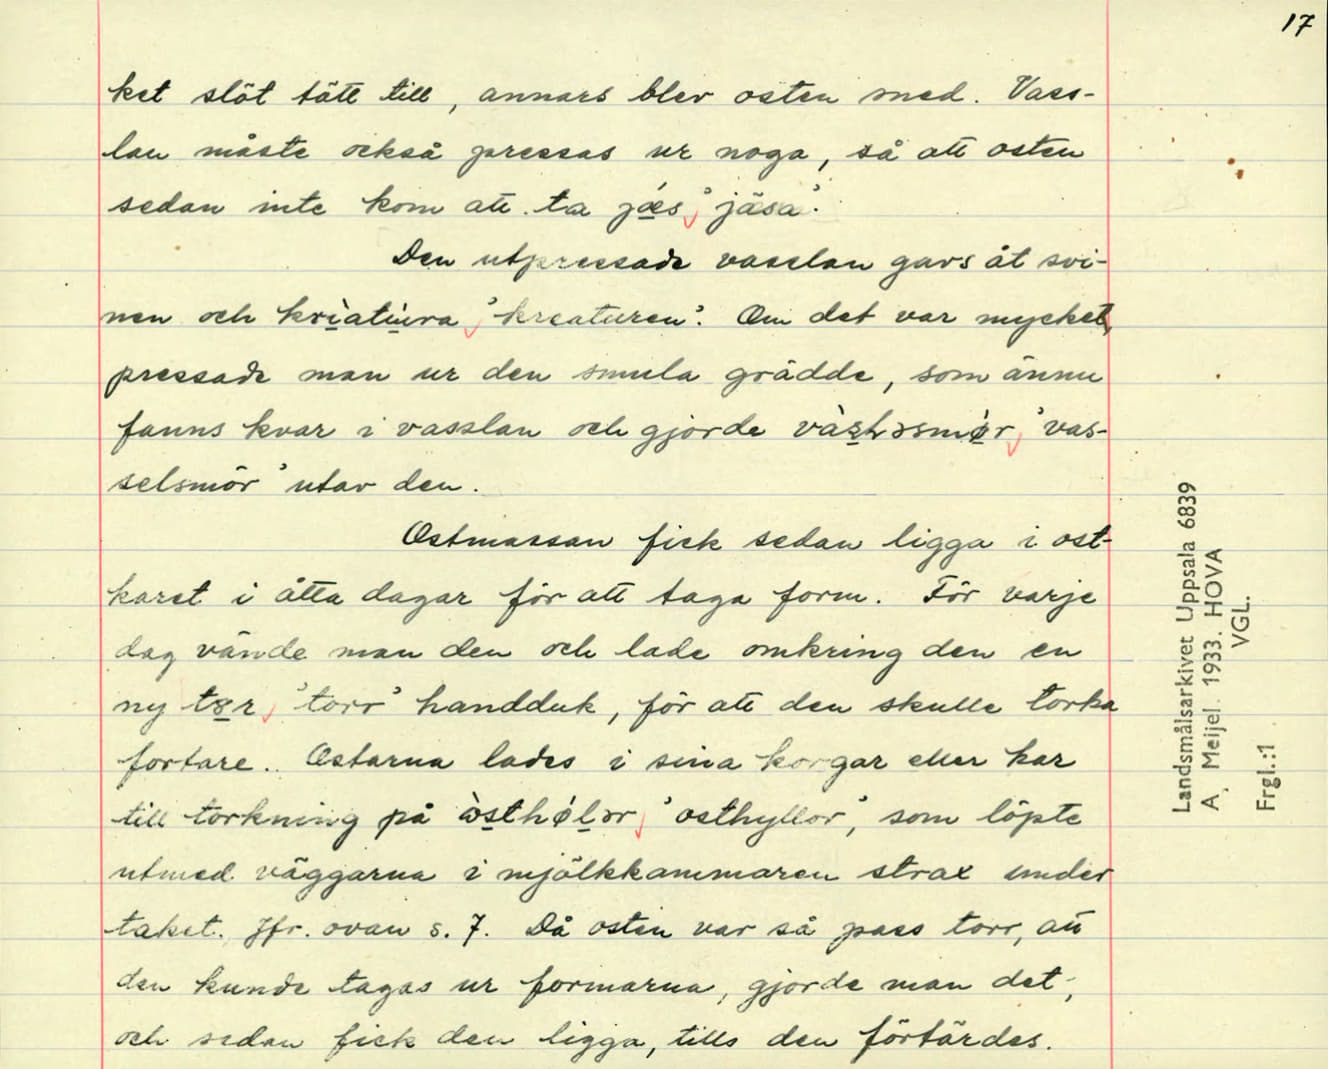 17
ket slöt tätt till, annars blev osten sned. Vass-
lan måste också pressas ur noga, så att osten
sedan inte kom att ta jǽs 'jäsa'.
Den utpressade vasslan gavs åt svi-
nen och krìatúra 'kreaturen'. Om det var mycket,
pressade man ur den smula grädde, som ännu
fanns kvar i vasslan och gjorde 'vas-
selsmör' utav den.
Ostmassan fick sedan ligga i ost-
karet i åtta dagar för att taga form. För varje
dag vände man den och lade omkring den en
ny 'torr' handduk, för att den skulle torka
fortare. Ostarna lades i sina korgar eller kar
till torkning på 'osthyllor', som löpte
utmed väggarna i mjölkkammaren strax under
taket. Jfr. ovan s. 7. Då osten var så pass torr, att
den kunde tagas ur formarna, gjorde man det;
och sedan fick den ligga, tills den förtärdes.
Landsmålsarkivet Uppsala 6839
A. Meijel. 1933. HOVA
VGL.
Frgl.:1